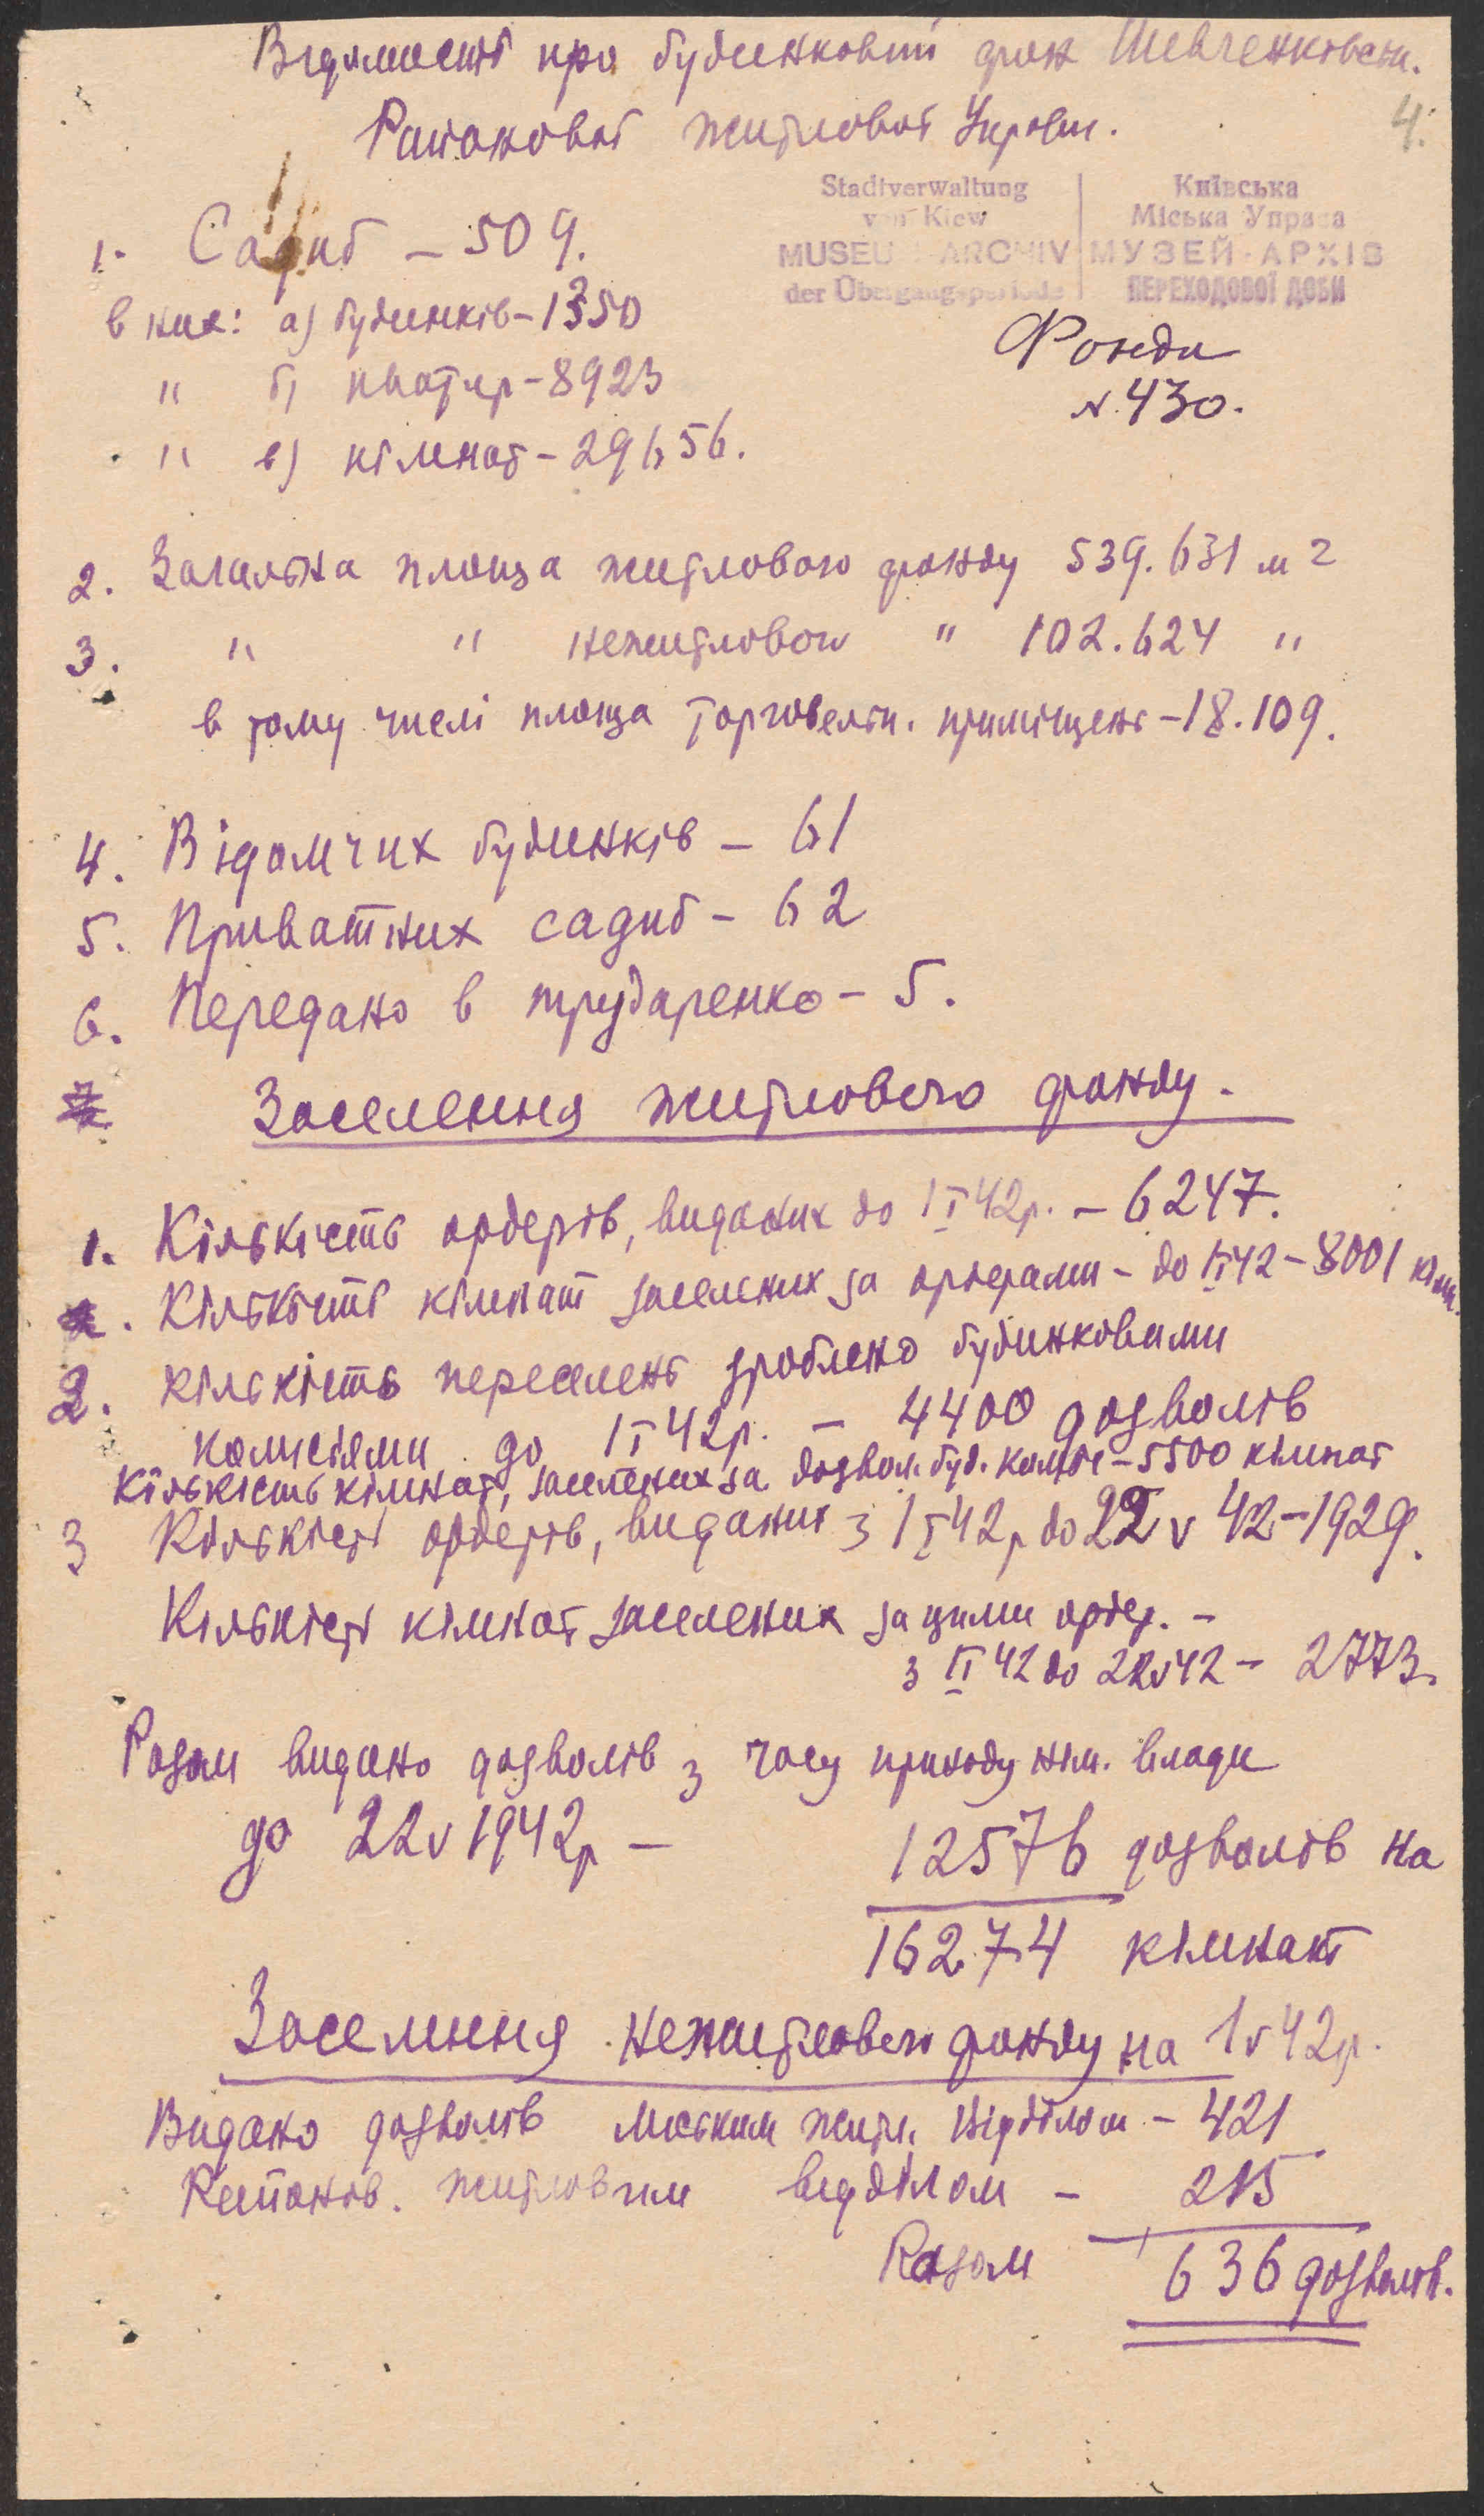 Відомості про будинковий фон Шевченківськ.
Районової житлової Управи.
4.
Stadtverwaltung
von Kiew
MUSEUM-ARCHIV
der Übergangsperiode
Київська
Міська Управа
МУЗЕЙ-АРХІВ
ПЕРЕХОДОВОЇ ДОБИ
Фонди
N. 430.
1. Садиб – 509.
в них: а) будинків – 1350
" б) квартир – 8923
" в) кімнат – 29656.
2. Загальна площа житлового фонду 539.631 м2
3. " " нежитлового " 102.624 "
в тому числі площа торговельн. приміщень – 18.109.
4. Відомчих будинків – 61
5. Приватних садиб – 62
6. Передано в трударенко – 5.
Заселення житлового фонду.
1. Кількість ордерів, виданих до 1 I 42р. – 6247.
Кількість кімнат заселених за ордерами – до 1 I 42 – 8001 кімн.
2. Кількість переселень зроблено будинковими
комісіями до 1 I 42р. – 4400 дозволів
Кількість кімнат, заселених за дозвол. буд. коміс – 5500 кімнат
3 Кількість ордерів, виданих з 1 I 42р до 22 V 42 – 1929.
Кількість кімнат заселених за цими ордер. –
з 1 I 42 до 22 V 42 – 2773.
Разом видано дозволів з часу приходу нім. влади
до 22 V 1942р –
12576 дозволів на
16274 кімнат
Заселення нежитлового фонду на 1 V 42р.
Видано дозволів міським житл. відділом – 421
Районов. житловим відділом – 215
Разом 636 дозволів.